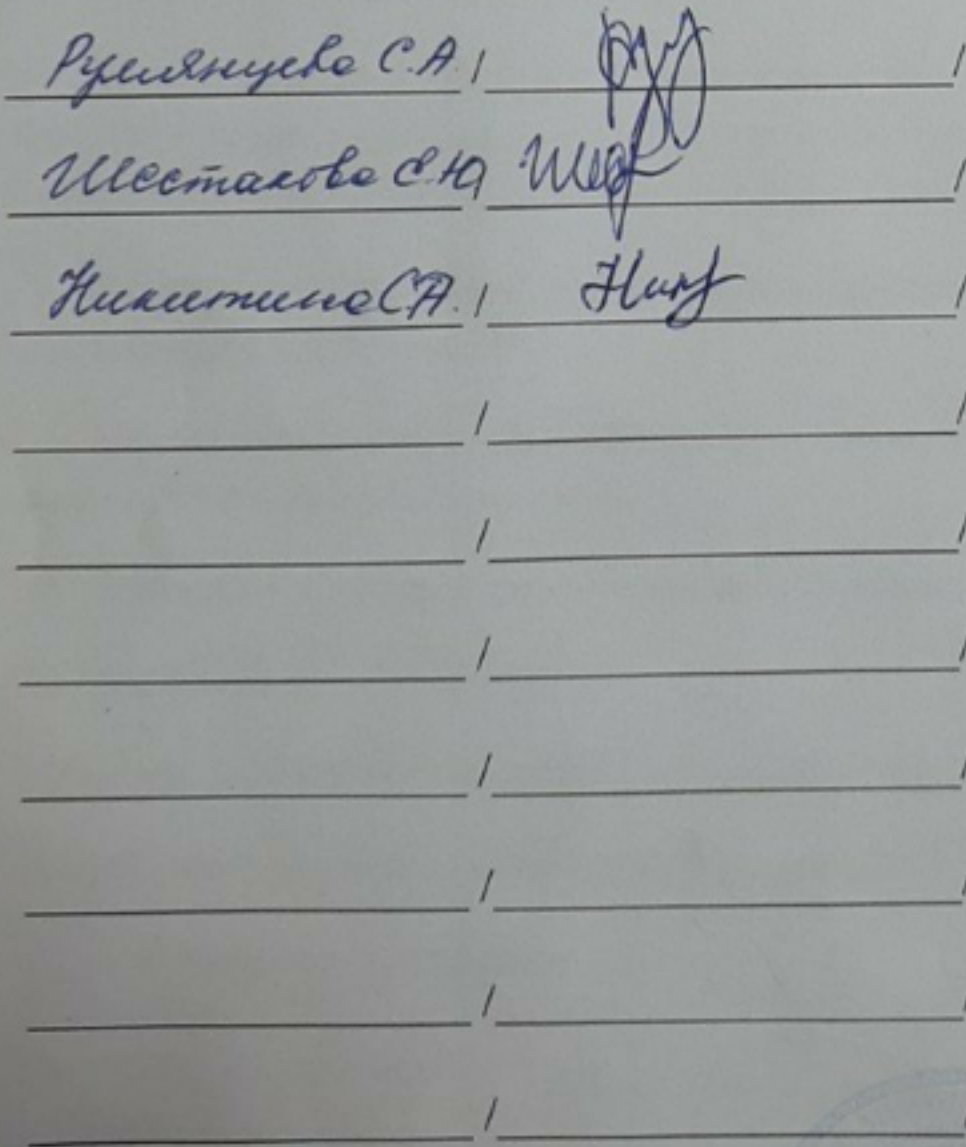 Румянцева С.А. / /
Шестакова Е.Ю / /
Никитина С.А. / /
/ /
/ /
/ /
/ /
/ /
/ /
/ /